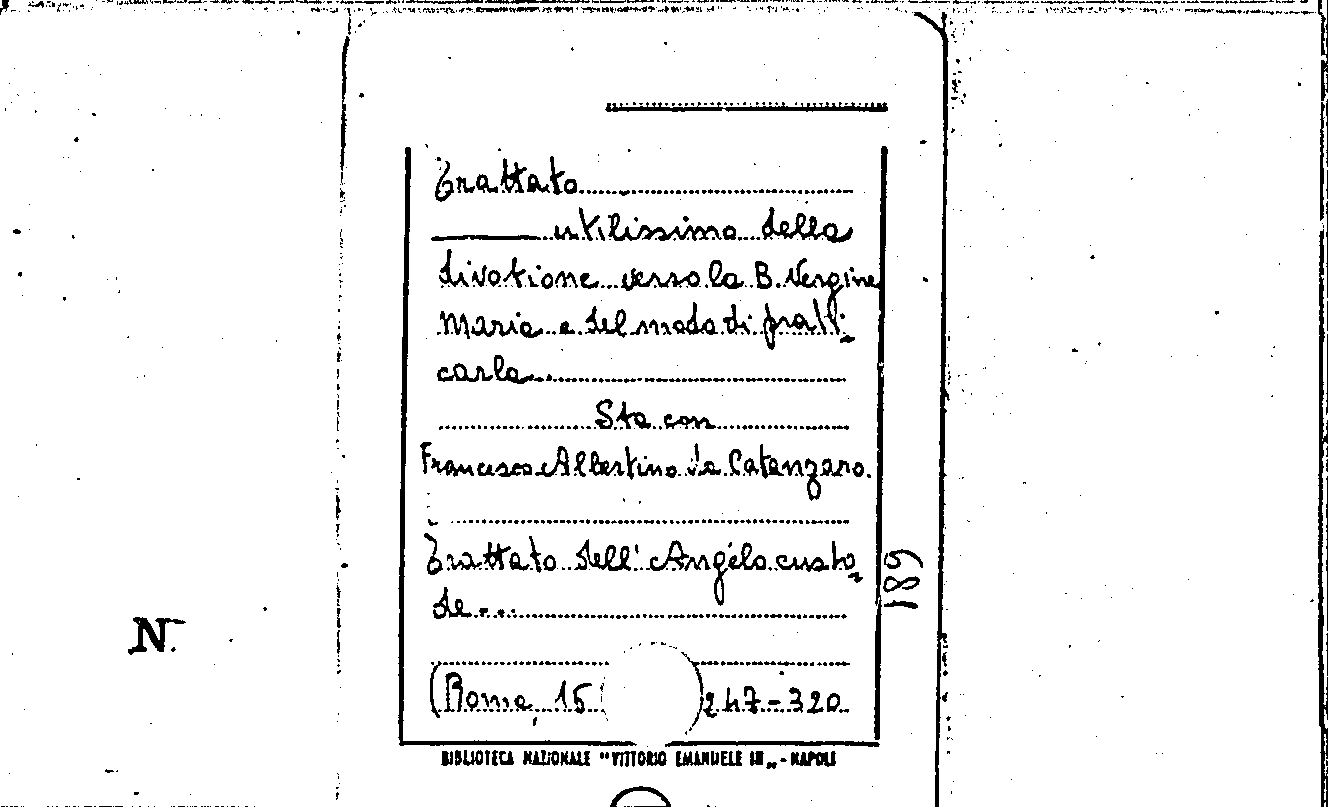 Trattato
utilissimo della
divotione verso la B. Vergine
Maria e del modo di pratti-
carla...
Sta con
Francesco Albertino da Catanzaro.
Trattato dell'Angelo custo-
de...
(Roma, 15 247-320
BIBLIOTECA NAZIONALE "VITTORIO EMANUELE III" - NAPOLI
189
N.